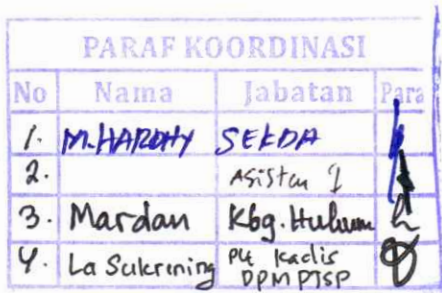 PARAF KOORDINASI
No Nama Jabatan Para
1. M. HARDHY SEKDA
2. Asisten I
3. Mardan Kbg. Hukum
4. La Sukrening Plt Kadis
DPMPTSP